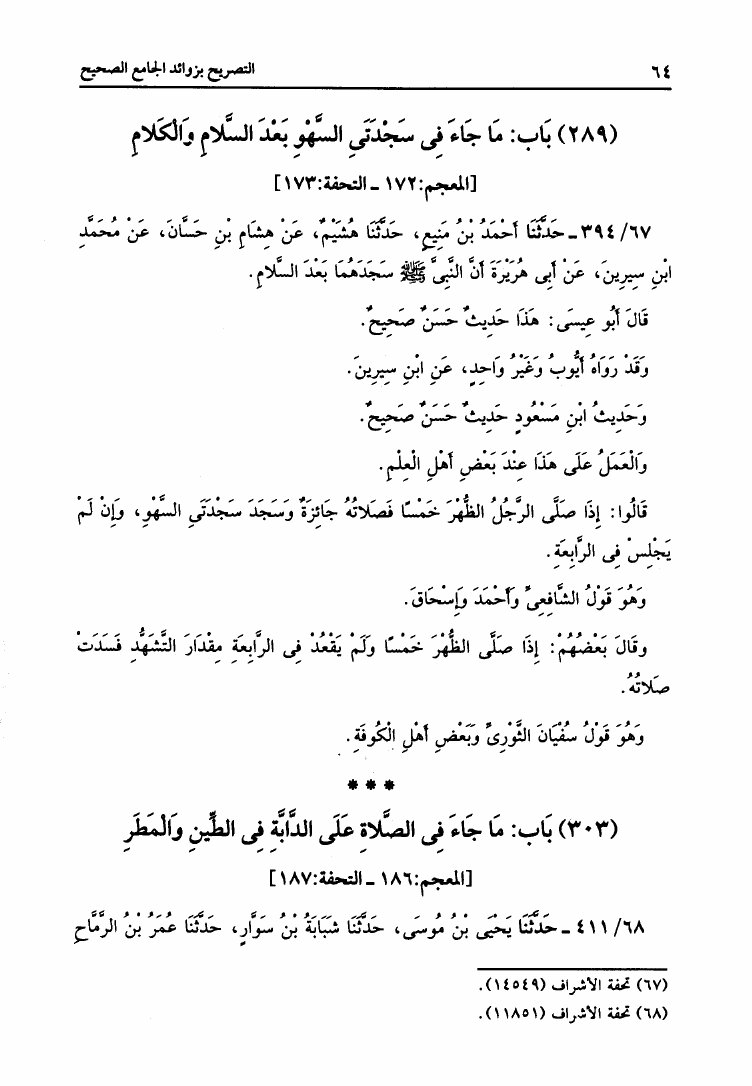 ٦٤ التصريح بزوائد الجامع الصحيح
(٢٨٩) بَاب: مَا جَاءَ فِي سَجْدَتَيِ السَّهْوِ بَعْدَ السَّلَامِ وَالْكَلَامِ
[المعجم:١٧٢ ـ التحفة:١٧٣]
٣٩٤/٦٧ ـ حَدَّثَنَا أَحْمَدُ بْنُ مَنِيعٍ، حَدَّثَنَا هُشَيْمٌ، عَنْ هِشَامِ بْنِ حَسَّانَ، عَنْ مُحَمَّدِ
ابْنِ سِيرِينَ، عَنْ أَبِي هُرَيْرَةَ أَنَّ النَّبِيَّ ﷺ سَجَدَهُمَا بَعْدَ السَّلَامِ.
قَالَ أَبُو عِيسَى: هَذَا حَدِيثٌ حَسَنٌ صَحِيحٌ.
وَقَدْ رَوَاهُ أَيُّوبُ وَغَيْرُ وَاحِدٍ، عَنِ ابْنِ سِيرِينَ.
وَحَدِيثُ ابْنِ مَسْعُودٍ حَدِيثٌ حَسَنٌ صَحِيحٌ.
وَالْعَمَلُ عَلَى هَذَا عِنْدَ بَعْضِ أَهْلِ الْعِلْمِ.
قَالُوا: إِذَا صَلَّى الرَّجُلُ الظُّهْرَ خَمْسًا فَصَلَاتُهُ جَائِزَةٌ وَسَجَدَ سَجْدَتَيِ السَّهْوِ، وَإِنْ لَمْ
يَجْلِسْ فِي الرَّابِعَةِ.
وَهُوَ قَوْلُ الشَّافِعِيِّ وَأَحْمَدَ وَإِسْحَاقَ.
وقَالَ بَعْضُهُمْ: إِذَا صَلَّى الظُّهْرَ خَمْسًا وَلَمْ يَقْعُدْ فِي الرَّابِعَةِ مِقْدَارَ التَّشَهُّدِ فَسَدَتْ
صَلَاتُهُ.
وَهُوَ قَوْلُ سُفْيَانَ الثَّوْرِيِّ وَبَعْضِ أَهْلِ الْكُوفَةِ.
* * *
(٣٠٣) بَاب: مَا جَاءَ فِي الصَّلَاةِ عَلَى الدَّابَّةِ فِي الطِّينِ وَالْمَطَرِ
[المعجم:١٨٦ ـ التحفة:١٨٧]
٤١١/٦٨ ـ حَدَّثَنَا يَحْيَى بْنُ مُوسَى، حَدَّثَنَا شَبَابَةُ بْنُ سَوَّارٍ، حَدَّثَنَا عُمَرُ بْنُ الرَّمَّاحِ
(٦٧) تحفة الأشراف (١٤٥٤٩).
(٦٨) تحفة الأشراف (١١٨٥١).